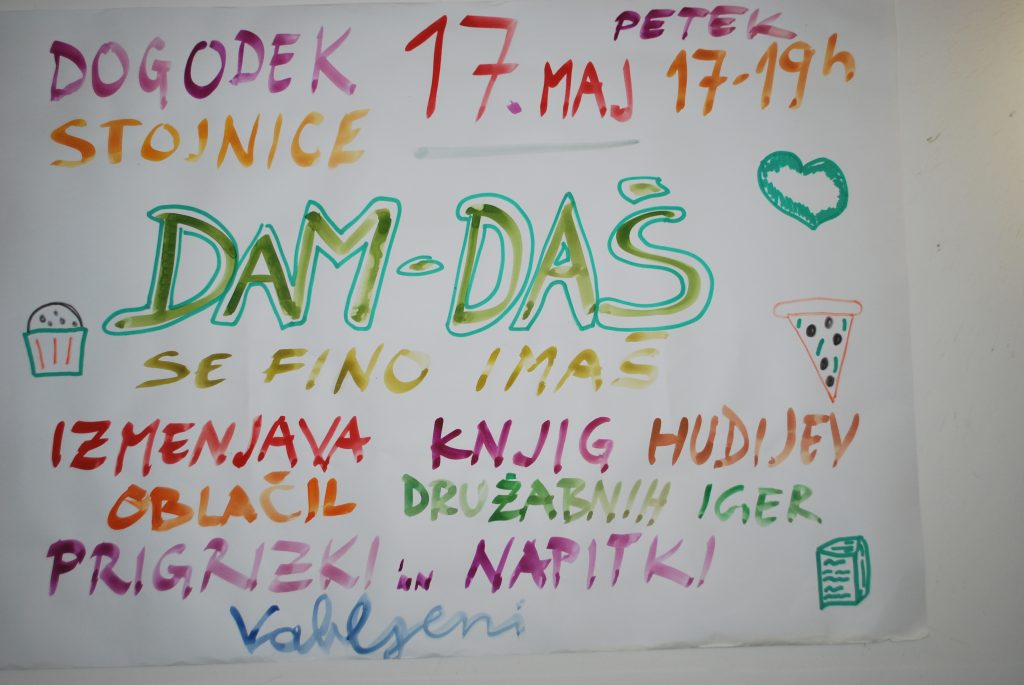 DOGODEK 17. MAJ PETEK 17-19h
STOJNICE
DAM-DAŠ
SE FINO IMAŠ
IZMENJAVA KNJIG HUDIJEV
OBLAČIL DRUŽABNIH IGER
PRIGRIZKI in NAPITKI
Vabljeni